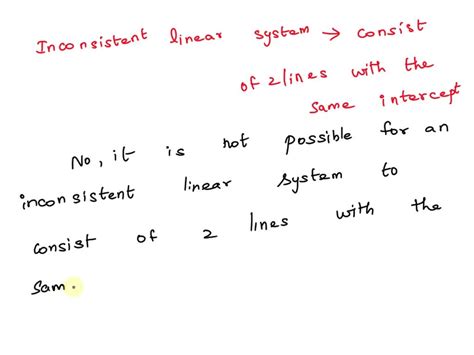 Inconsistent linear system → consist
of 2 lines with the
same intercept
No, it is not possible for an
inconsistent linear system to
consist of 2 lines with the
sam